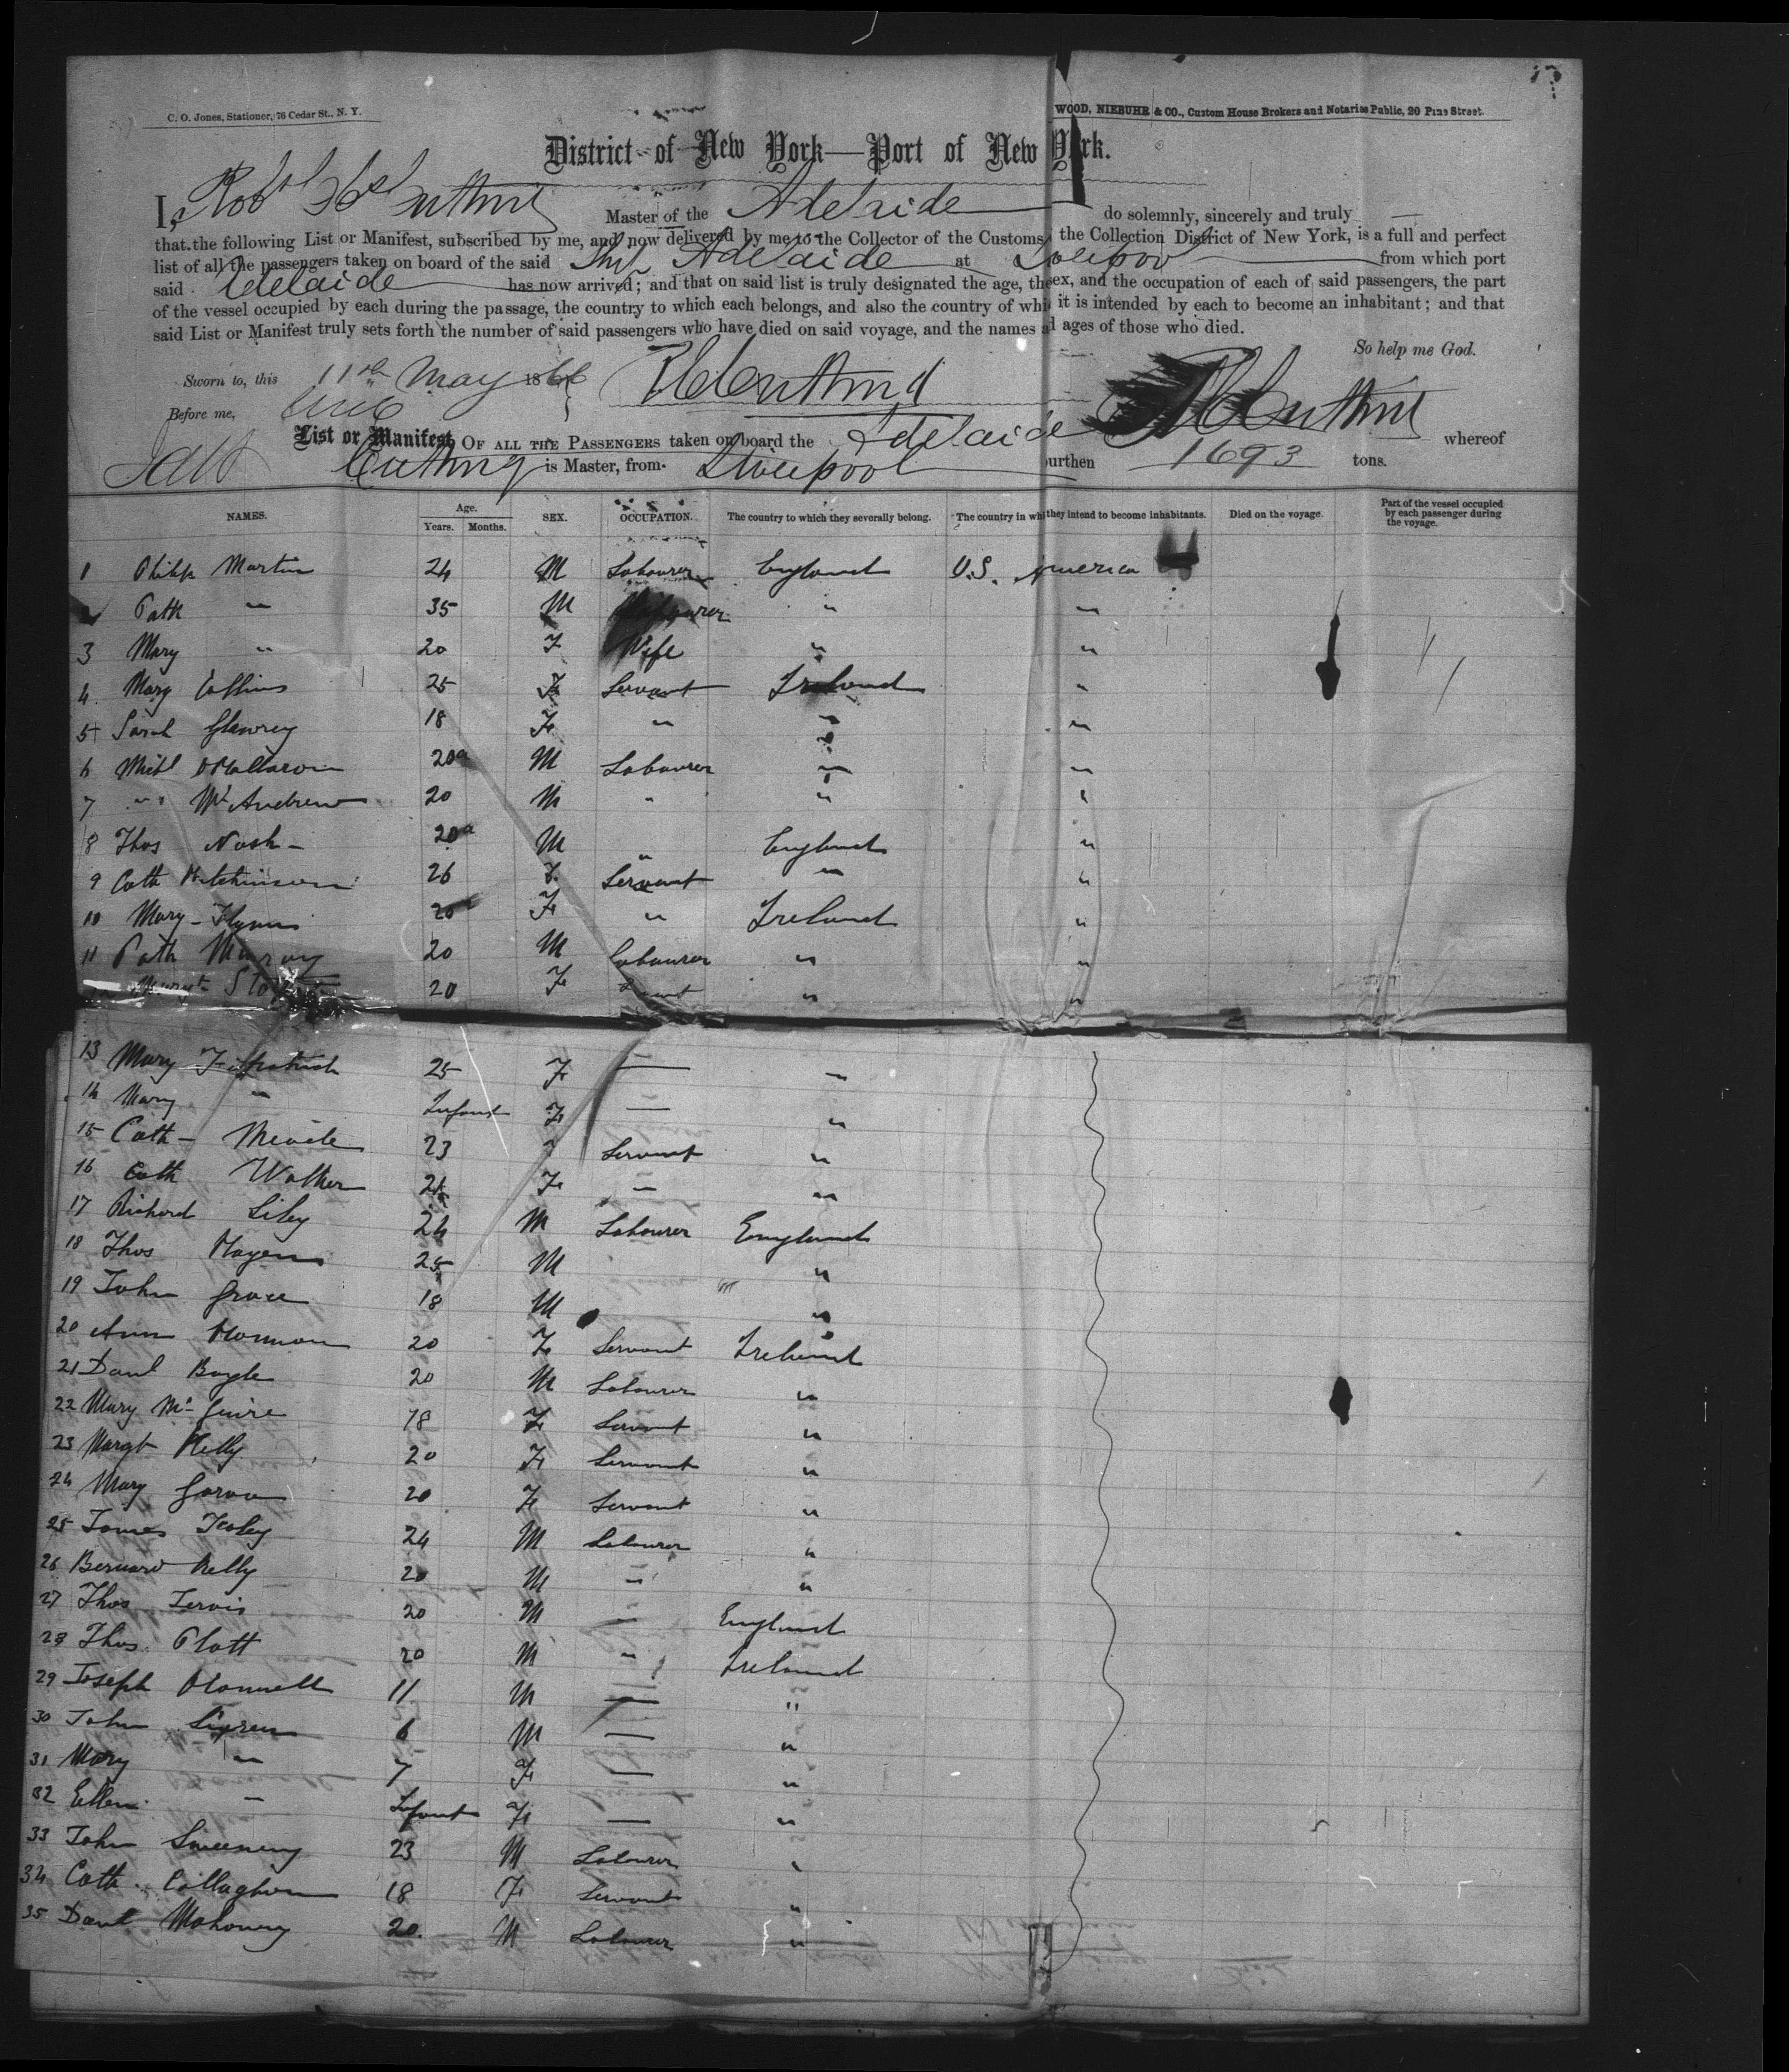 C. O. Jones, Stationer, 76 Cedar St., N. Y.
WOOD, NIEBUHR & CO., Custom House Brokers and Notaries Public, 20 Pine Street.
District of New York—Port of New York.
I, Robt Cutting Master of the Adelaide do solemnly, sincerely and truly
that the following List or Manifest, subscribed by me, and now delivered by me to the Collector of the Customs the Collection District of New York, is a full and perfect
list of all the passengers taken on board of the said Ship Adelaide at Liverpool from which port
said Adelaide has now arrived; and that on said list is truly designated the age, the sex, and the occupation of each of said passengers, the part
of the vessel occupied by each during the passage, the country to which each belongs, and also the country of whi it is intended by each to become an inhabitant; and that
said List or Manifest truly sets forth the number of said passengers who have died on said voyage, and the names ages of those who died.
So help me God.
Sworn to, this 11th May 1866 Cutting
Before me,
List or Manifest OF ALL THE PASSENGERS taken on board the Adelaide whereof
Cutting is Master, from Liverpool burthen 1693 tons.
NAMES. Age. Years. Months. SEX. OCCUPATION. The country to which they severally belong. The country in whi they intend to become inhabitants. Died on the voyage. Part of the vessel occupied by each passenger during the voyage.
1 Philip Martin 24 M Labourer England U.S. America
Path " 35 M Labourer " "
3 Mary " 20 F Wife " "
4 Mary Collins 25 F Servant Ireland "
5 Sarah 18 F " " "
6 Michl 20 M Labourer " "
7 " McAndrew 20 M " " "
8 Thos Nash 20 M " England "
9 Cath Hutchinson 26 F Servant " "
10 Mary Flynn 20 F " Ireland "
11 Path Murray 20 M Labourer " "
Margt 20 F Servant " "
13 Mary Fitzpatrick 25 F — "
14 Mary " Infant F — "
15 Cath 23 F Servant "
16 Cath Walker 24 F " "
17 Richard Liley 24 M Labourer England
18 Thos Hagen 25 M "
19 John Grace 18 M "
20 Ann 20 F Servant Ireland
21 Danl Boyle 20 M Labourer "
22 Mary McGuire 18 F Servant "
23 Margt Kelly 20 F Servant "
24 Mary 20 F Servant "
25 James Foley 24 M Labourer "
26 Bernard Kelly 20 M " "
27 Thos Jervis 20 M " England
28 Thos. Platt 20 M " Ireland
29 Joseph OConnell 11 M — "
30 John 6 M — "
31 Mary " 7 F — "
32 Ellen " Infant F — "
33 John Sweeney 23 M Labourer "
34 Cath Callaghan 18 F Servant "
35 Danl Mahoney 20 M Labourer "